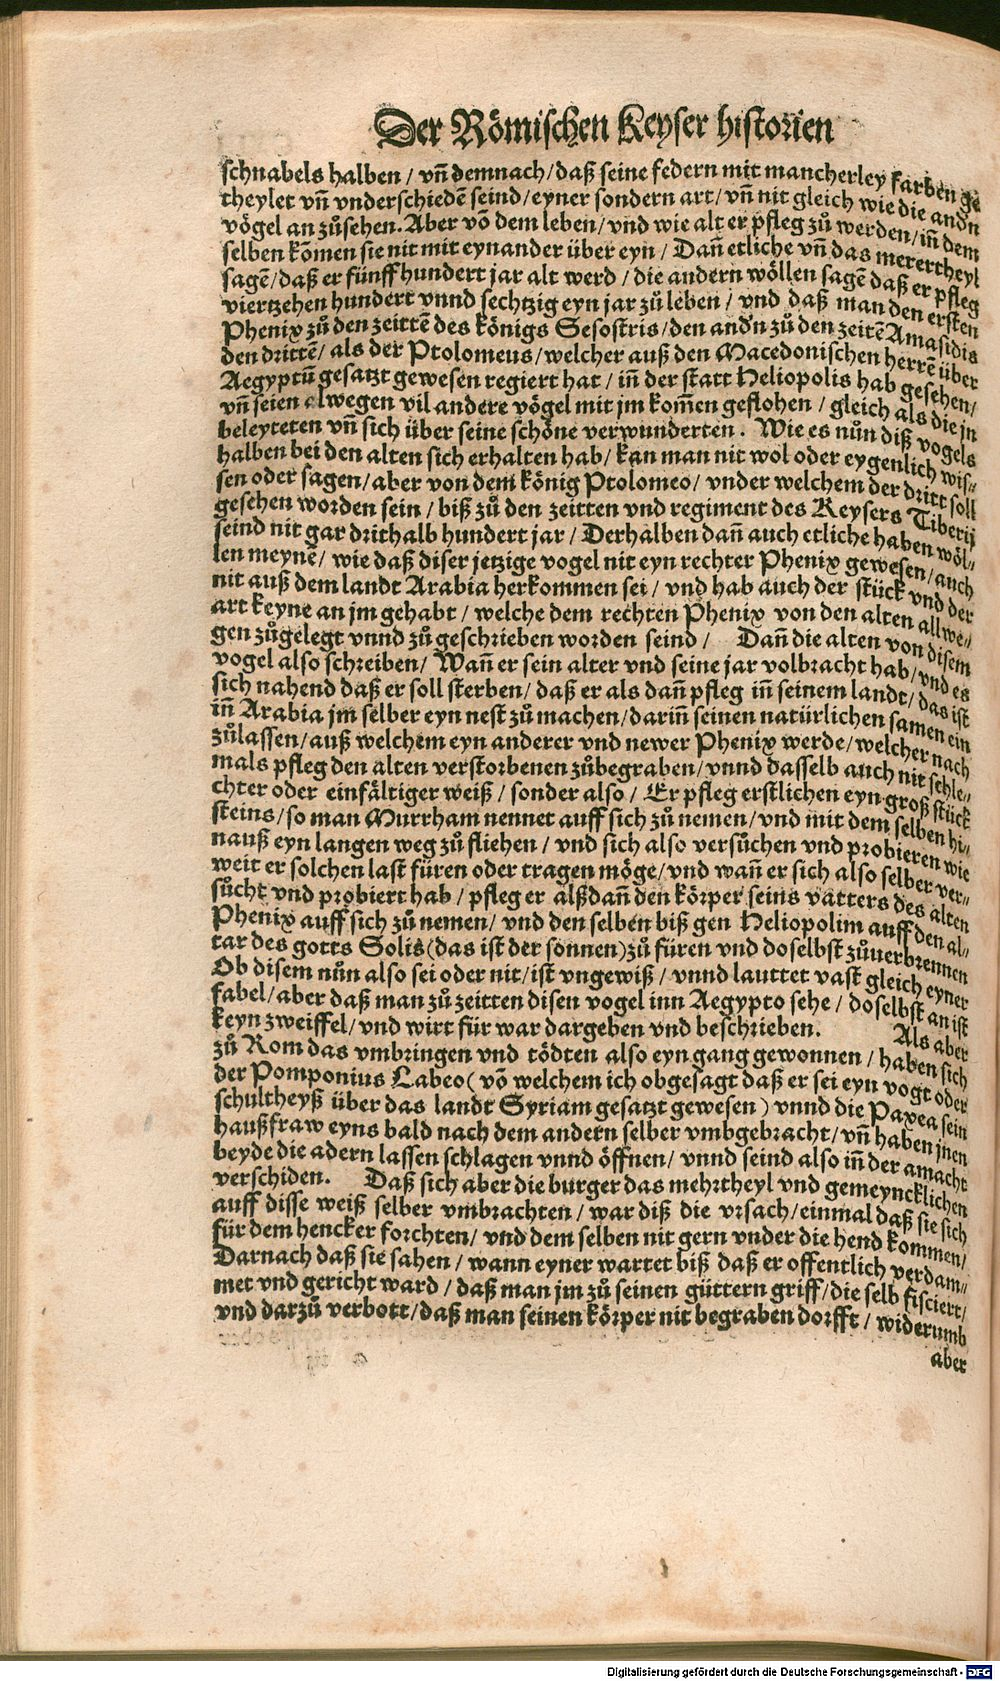 Der Römischen Keyser historien
schnabels halben / vñ demnach / daß seine federn mit mancherley farben ge
theylet vñ vnderschiedẽ seind / eyner sondern art / vñ nit gleich wie die andn
vögel an zůsehen. Aber võ dem leben / vnd wie alt er pfleg zů werden / iñ dem
selben kõmen sie nit mit eynander über eyn / Dañ etliche vñ das merertheyl
sagẽ / daß er fünff hundert jar alt werd / die andern wöllen sagẽ daß er pfleg
viertzehen hundert vnnd sechtzig eyn jar zů leben / vnd daß man den ersten
Phenix zů den zeittẽ des königs Sesostris / den andn zů den zeitẽ Amasidis
den drittẽ / als der Ptolomeus / welcher auß den Macedonischen herrẽ über
Aegyptũ gesatzt gewesen regiert hat / iñ der statt Heliopolis hab gesehen /
vñ seien alwegen vil andere vögel mit jm kom̃en geflohen / gleich als die jn
beleyteten vñ sich über seine schöne verwunderten. Wie es nůn diß vogels
halben bei den alten sich erhalten hab / kan man nit wol oder eygenlich wis⸗
sen oder sagen / aber von dem könig Ptolomeo / vnder welchem der dritt soll
gesehen worden sein / biß zů den zeitten vnd regiment des Keysers Tiberij
seind nit gar drithalb hundert jar / Derhalben dañ auch etliche haben wöl⸗
len meynẽ / wie daß diser jetzige vogel nit eyn rechter Phenix gewesen / auch
nit auß dem landt Arabia herkommen sei / vnd hab auch der stück vnd der
art keyne an jm gehabt / welche dem rechten Phenix von den alten allwe⸗
gen zůgelegt vnnd zů geschrieben worden seind / Dañ die alten von disem
vogel also schreiben / Wañ er sein alter vnd seine jar volbracht hab / vnd es
sich nahend daß er soll sterben / daß er als dañ pfleg iñ seinem landt / das ist
iñ Arabia jm selber eyn nest zů machen / dariñ seinen natürlichen samen ein
zůlassen / auß welchem eyn anderer vnd newer Phenix werde / welcher nach
mals pfleg den alten verstorbenen zůbegraben / vnnd dasselb auch nit schle⸗
chter oder einfältiger weiß / sonder also / Er pfleg erstlichen eyn groß stück
steins / so man Murrham nennet auff sich zů nemen / vnd mit dem selben hi⸗
nauß eyn langen weg zů fliehen / vnd sich also versůchen vnd probieren wie
weit er solchen last füren oder tragen möge / vnd wañ er sich also selber ver⸗
sůcht vnd probiert hab / pfleg er alßdañ den körper seins vatters des alten
Phenix auff sich zů nemen / vnd den selben biß gen Heliopolim auff den al⸗
tar des gotts Solis (das ist der sonnen) zů füren vnd doselbst zůuerbrennen
Ob disem nůn also sei oder nit / ist vngewiß / vnnd lauttet vast gleich eyner
fabel / aber daß man zů zeitten disen vogel inn Aegypto sehe / doselbst an ist
keyn zweiffel / vnd wirt für war dargeben vnd beschrieben. Als aber
zů Rom das vmbringen vnd tödten also eyn gang gewonnen / haben sich
der Pomponius Labeo (võ welchem ich obgesagt daß er sei eyn vogt oder
schultheyß über das landt Syriam gesatzt gewesen) vnnd die Paxea sein
haußfraw eyns bald nach dem andern selber vmbgebracht / vñ haben jnen
beyde die adern lassen schlagen vnnd öffnen / vnnd seind also iñ der amacht
verschiden. Daß sich aber die burger das mehrtheyl vnd gemeyncklichen
auff disse weiß selber vmbrachten / war diß die vrsach / einmal daß sie sich
für dem hencker forchten / vnd dem selben nit gern vnder die hend kommen /
Darnach daß sie sahen / wann eyner wartet biß daß er offentlich verdam⸗
met vnd gericht ward / daß man jm zů seinen güttern griff / die selb fisciert /
vnd darzů verbott / daß man seinen körper nit begraben dorfft / widerumb
aber
Digitalisierung gefördert durch die Deutsche Forschungsgemeinschaft - DFG